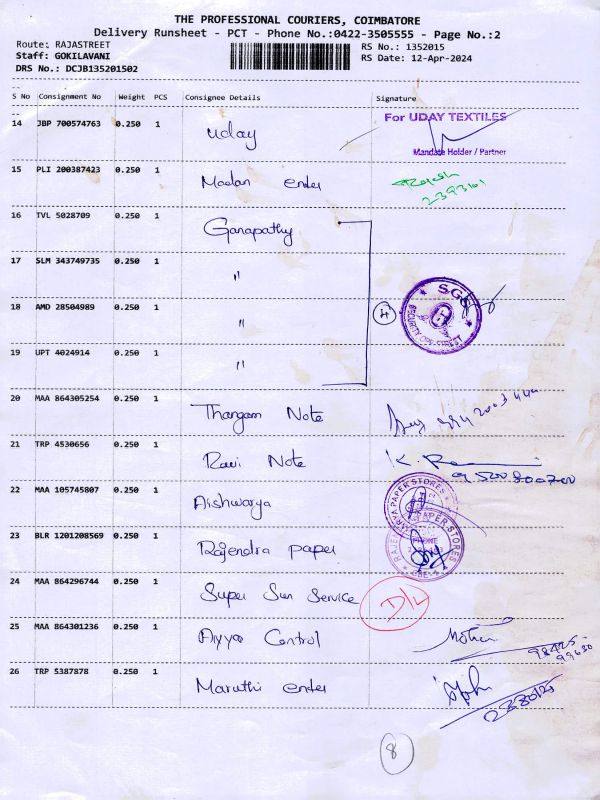 THE PROFESSIONAL COURIERS, COIMBATORE
Delivery Runsheet - PCT - Phone No.:0422-3505555 - Page No.:2
Route: RAJASTREET
RS No.: 1352015
Staff: GOKILAVANI
RS Date: 12-Apr-2024
DRS No.: DCJB135201502
S No Consignment No Weight PCS Consignee Details Signature
For UDAY TEXTILES
14 JBP 700574763 0.250 1 Uday
Mandate Holder / Partner
15 PLI 200387423 0.250 1 Madan enter
2393161
16 TVL 5028709 0.250 1 Ganapathy
17 SLM 343749735 0.250 1 "
18 AMD 28504989 0.250 1 " 4 SGS
19 UPT 4024914 0.250 1 "
20 MAA 864305254 0.250 1 Thangam Note
21 TRP 4530656 0.250 1 Ravi Note K.
22 MAA 105745807 0.250 1 Aishwarya
PAPER STORES
23 BLR 1201208569 0.250 1 Rajendra paper
PAPER STORES
PHONE
24 MAA 864296744 0.250 1 Super Sun Service D/L
25 MAA 864301236 0.250 1 Ayya Control
98425
99630
26 TRP 5387878 0.250 1 Maruthi enter
8